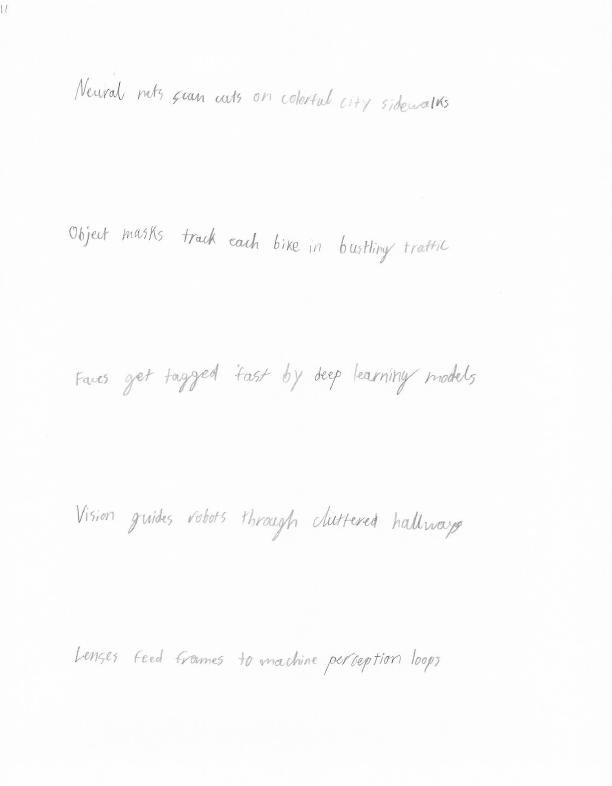 Neural nets scan cats on colorful city sidewalks
Object masks track each bike in bustling traffic
Faces get tagged fast by deep learning models
Vision guides robots through cluttered hallways
Lenses feed frames to machine perception loops